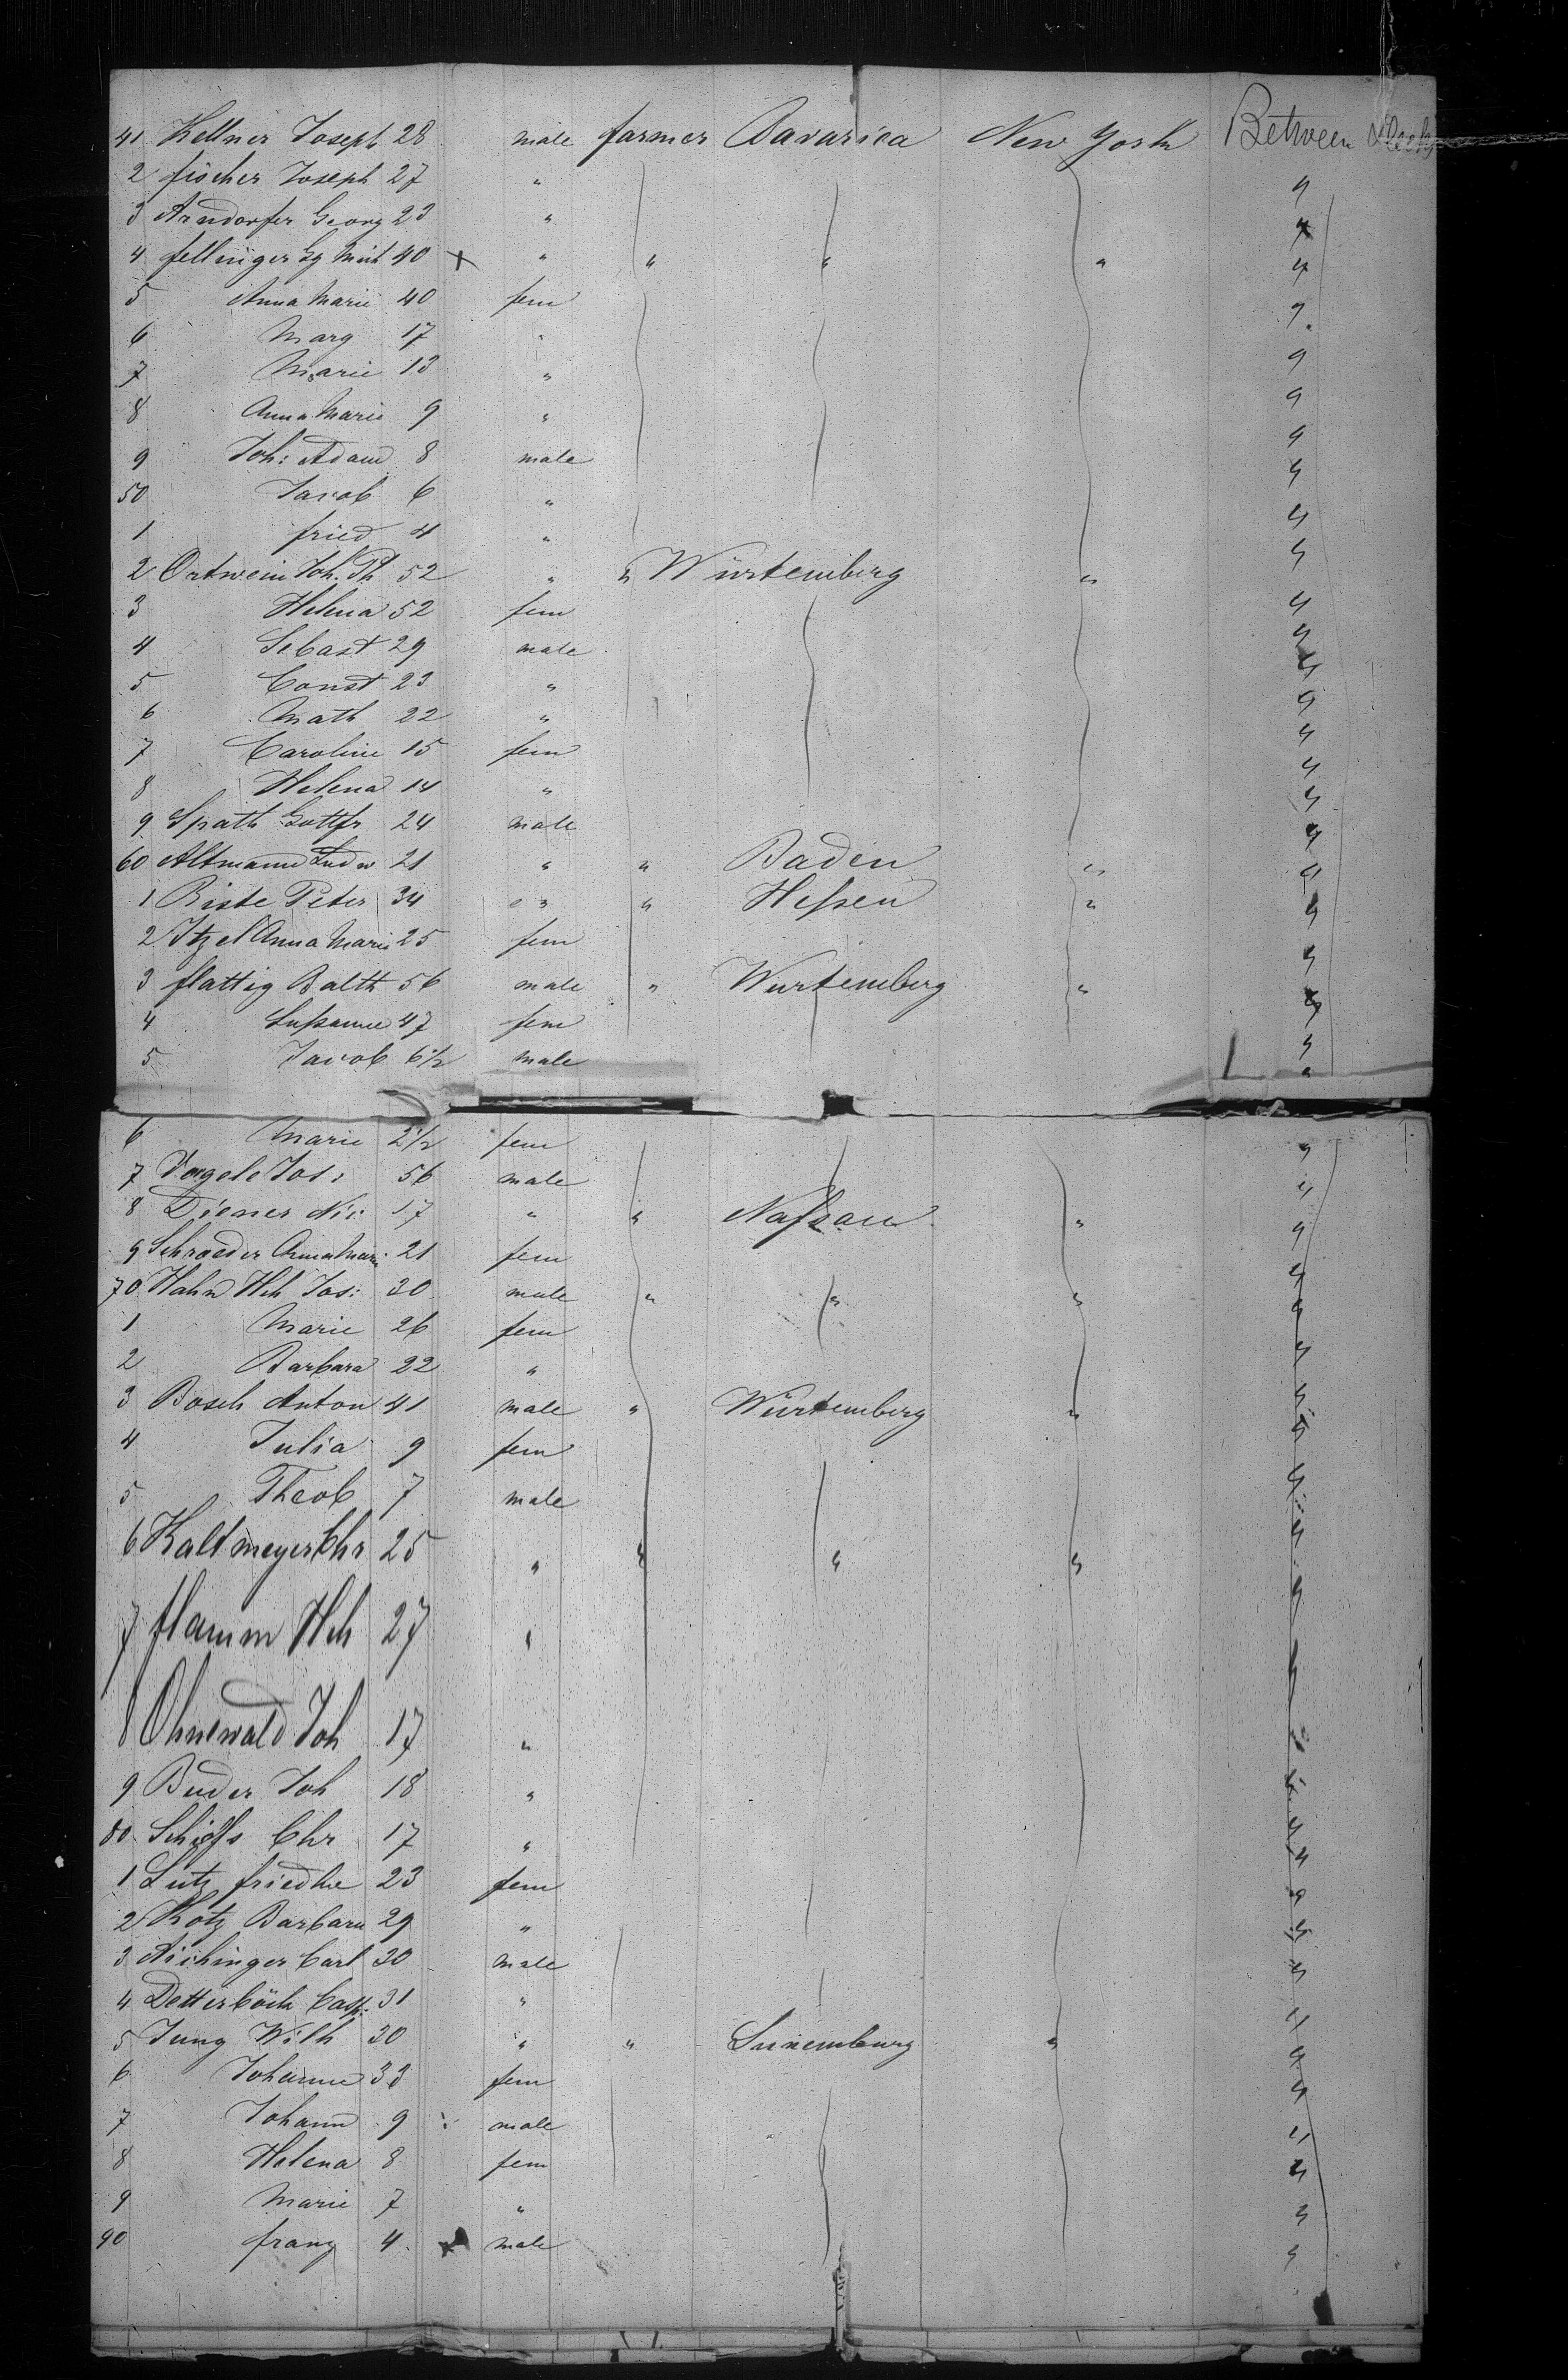 41 Kellner Joseph 28 male farmer Bavarica New York Between Decks
2 fischer Joseph 27 " "
3 Arndorfer Georg 23 " "
4 fellinger Gg Mich 40 x " " " " "
5 Anna Marie 40 fem "
6 Marg 17 " "
7 Marie 13 " "
8 Anna Marie 9 " "
9 Joh: Adam 8 male "
50 Jacob 6 " "
1 fried 4 " "
2 Ortwein Joh. Ph 52 " " Würtemberg " "
3 Helena 52 fem "
4 Sebast 29 male "
5 Const 23 " "
6 Math 22 " "
7 Caroline 15 fem "
8 Helena 14 " "
9 Spath Gottfr 24 male "
60 Altmann Ludw 21 " " Baden " "
1 Riste Peter 34 " " Hessen " "
2 Itzel Anna Marie 25 fem "
3 flattig Balth 56 male " Wurtemberg " "
4 Susanne 47 fem "
5 Jacob 6 1/2 male "
6 Marie 2 1/2 fem "
7 Vogele Jos: 56 male "
8 Diener Nic: 17 " " Nassau " "
9 Schroeder Anna Mari 21 fem "
70 Hahn Hch Jos: 30 male " " " "
1 Marie 26 fem "
2 Barbara 22 " "
3 Bosch Anton 41 male " Würtemberg " "
4 Julia 9 fem "
5 Theob 7 male "
6 Kaltmeyer Chr 25 " " " " "
7 flamm Hch 27 " "
8 Ohnewald Joh 17 " "
9 Buder Joh 18 " "
80 Chr 17 " "
1 Lutz friedke 23 fem "
2 Kotz Barbara 29 " "
3 Aichinger Carl 30 male "
4 Detterböck Casp: 31 " "
5 Jung Wilh 30 " " Luxemburg " "
6 Johanne 33 fem "
7 Johann 9 male "
8 Helena 8 fem "
9 Marie 7 " "
90 franz 4 male "